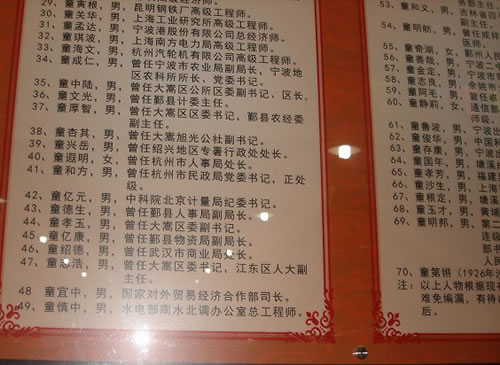 29、童寅根，男，昆明钢铁厂高级工程师。
30、童关华，男，上海工业研究所高级工程师。
31、童孟达，男，宁波港股份有限公司总经济师。
32、童琪波，男，上海南方电力局高级工程师。
33、童海文，男，杭州汽轮机有限公司高级工程师。
34、童成仁，男，曾任宁波市农业局副局长，宁波地
区农科所所长、党委书记。
35、童中陆，男，曾任大嵩区公所区委副书记、区长。
36、童文光，男，曾任鄞县计委主任。
37、童厚智，男，曾任大嵩区区委副书记，鄞县农经委
副主任。
38、童杏其，男，曾任大嵩旭光公社副书记。
39、童兴岳，男，曾任绍兴地区专署行政处处长。
40、童遐明，女，曾任杭州市人事局处长。
41、童和方，男，曾任杭州市民政局党委书记，正处
级。
42、童亿元，男，中科院北京计量局纪委书记。
43、童德生，男，曾任鄞县人事局副局长。
44、童孝玉，男，曾任大嵩区委副书记。
45、童亿康，男，曾任鄞县物资局副局长。
46、童绍德，男，曾任武汉市商业局处长。
47、童忠浩，男，曾任大嵩区委书记，江东区人大副
主任。
48 童宜中，男，国家对外贸易经济合作部司长。
49、童慎中，男，水电部南水北调办公室总工程师。
53、童和义，男，
54、童明舫，男，曾任
医师。
55、童奇湖，女，鄞州人民
56、童善哉，男，宁波二
57、童金定，男，宁波
58、童志良，男，余姚市
59、童阿毛，男，曾任鄞县
60、童静莉，女，通信部
师级。
61、童鲁波，男，宁波
62、童俊华，男，中国科
63、童存康，男，宁波
64、童国年，男，塘溪
65、童孝芳，男，福建
66、童沙生，男，上海
67、童根定，男，塘溪
68、童玉才，男，黄
69、童明邦，男，第二
连级
部书
人民
70、童第锵（1926年
注：以上人物根据现有
难免编漏，有待
后。